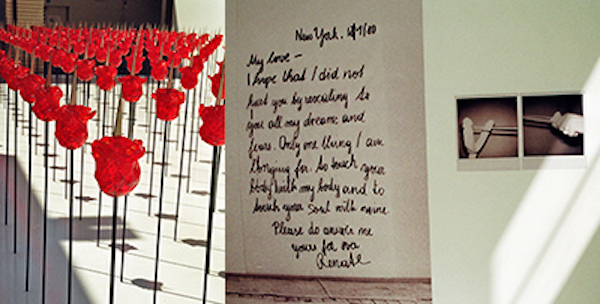 New York.
My love —
I hope that I did not
hurt you by revealing to
you all my dreams and
fears. Only one thing I am
longing for. to touch your
body with my body and to
touch your soul with mine
Please do answer me
yours for eva
Renate